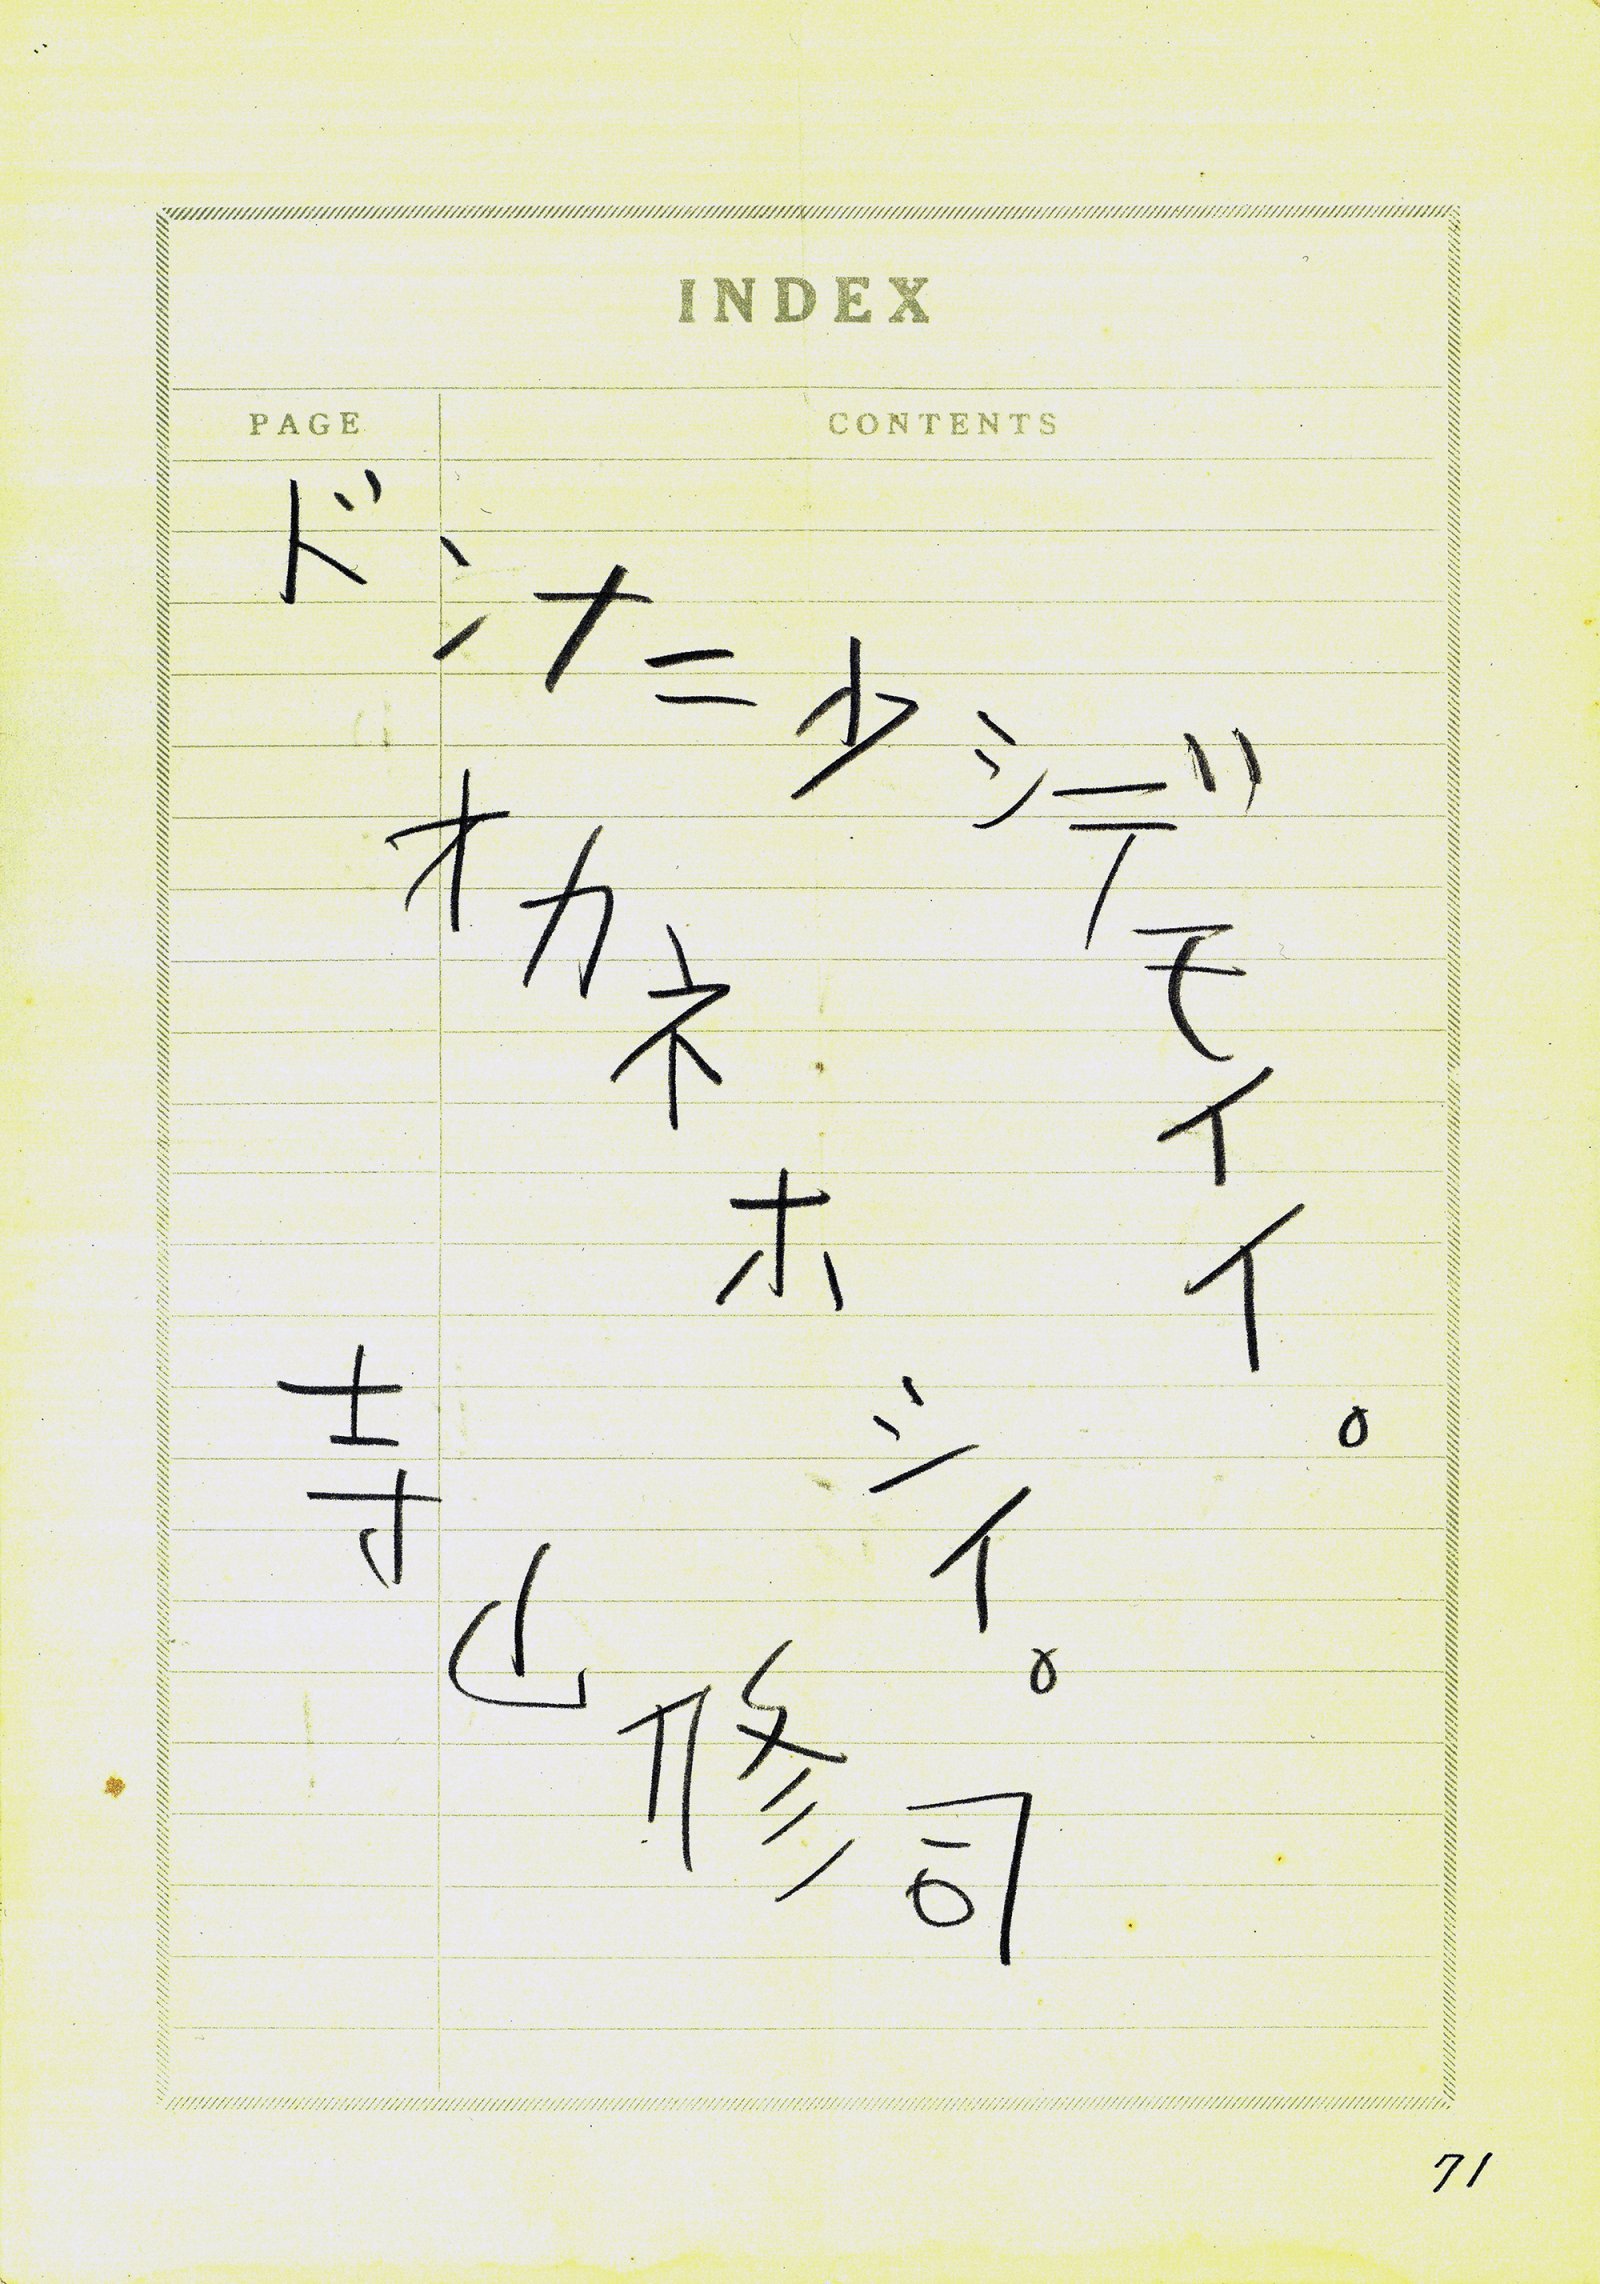 INDEX
PAGE CONTENTS
ドンナニ少シデモイイ。
オカネホシイ。
寺山修司
71